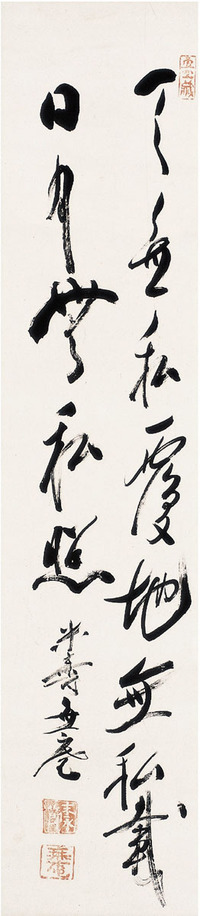 天無私覆地無私載
日月無私照
米壽無庵